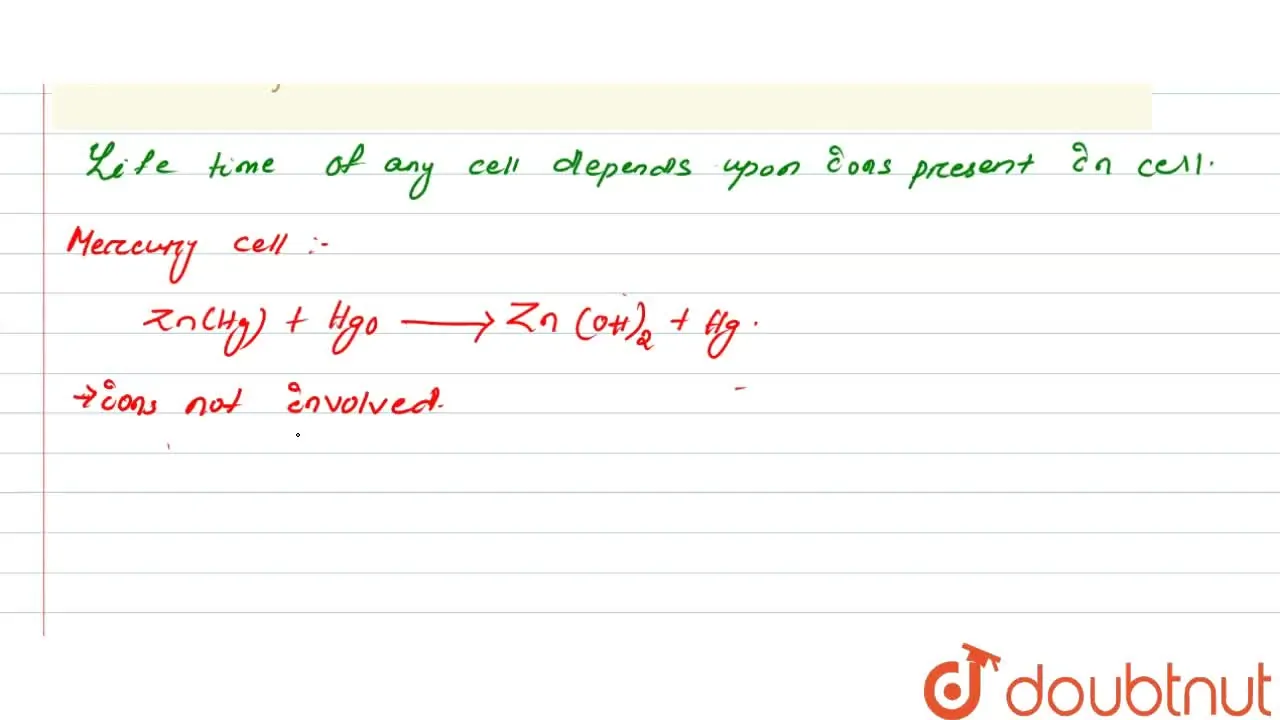 Life time of any cell depends upon ions present in cell.
Mercury cell :-
Zn(Hg) + HgO ⟶ Zn(OH)₂ + Hg.
→ ions not involved.
doubtnut